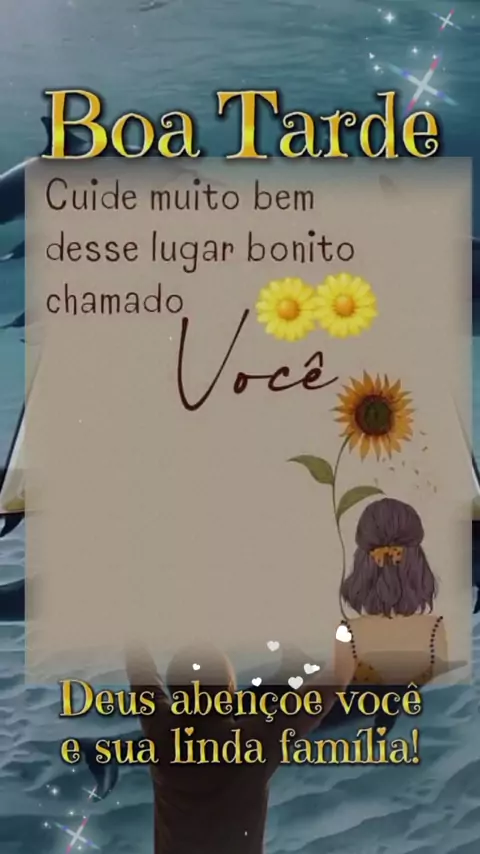 Boa Tarde
Cuide muito bem
desse lugar bonito
chamado
Você
Deus abençoe você
e sua linda família!